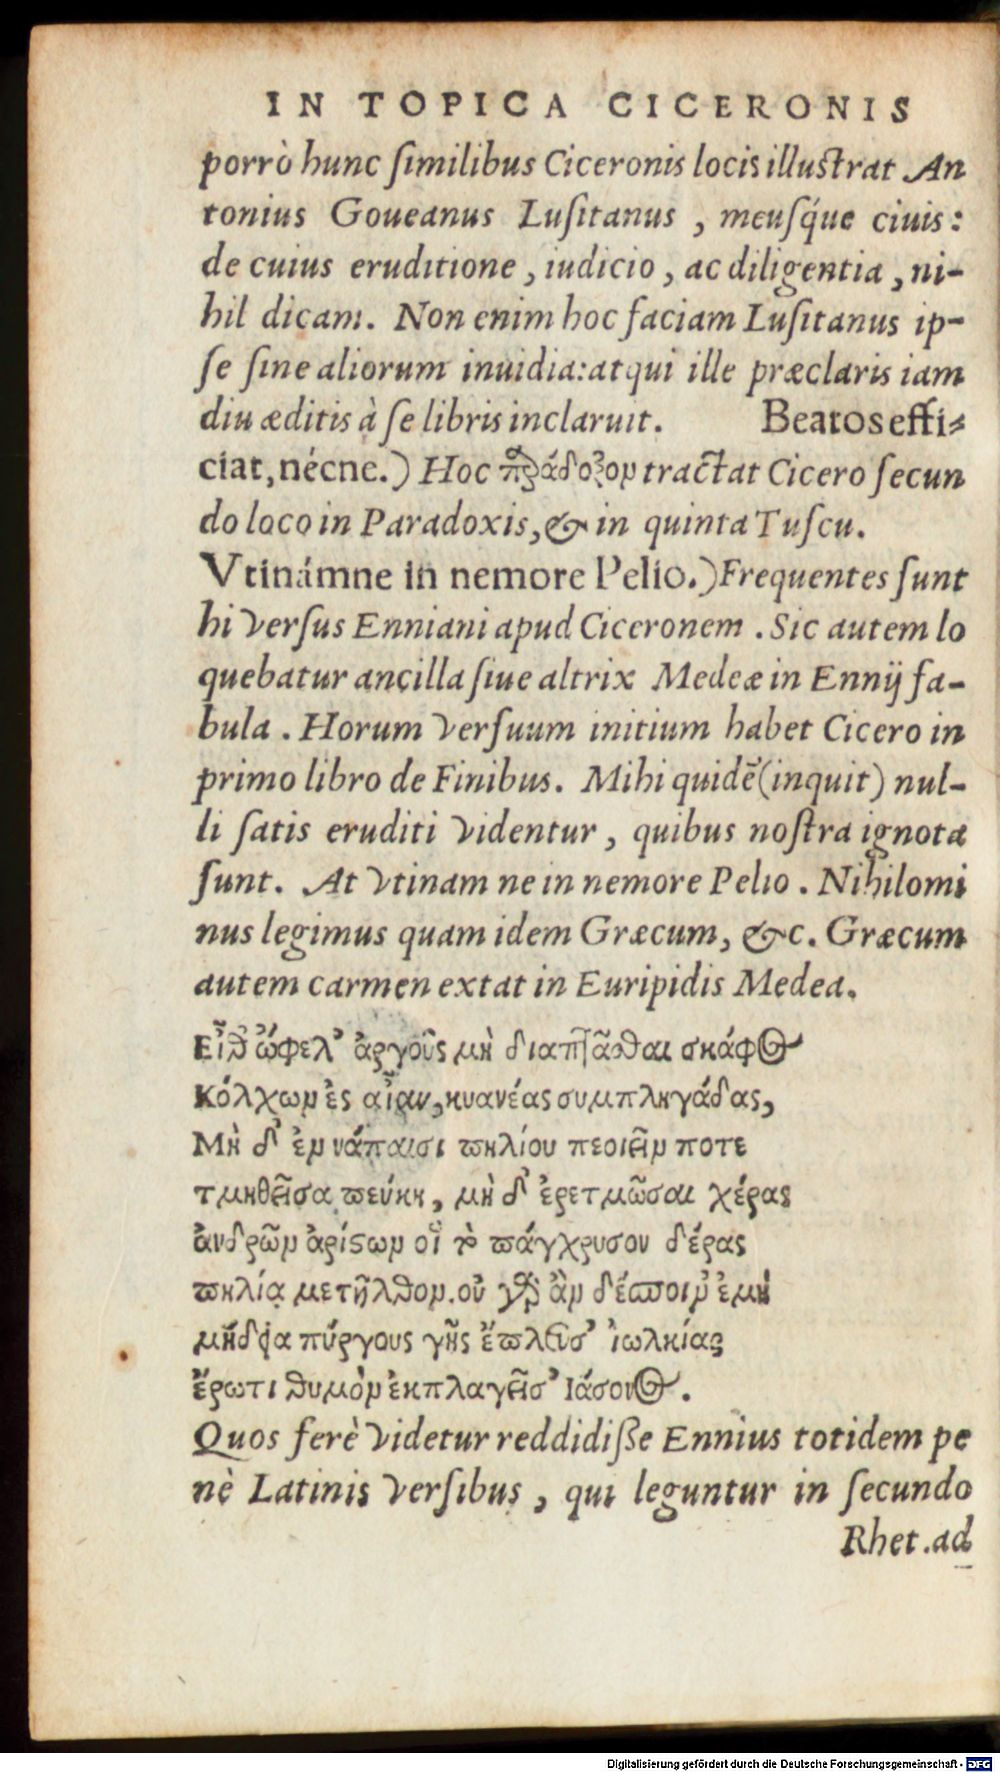 IN TOPICA CICERONIS
porrò hunc ſimilibus Ciceronis locis illuſtrat An
tonius Goueanus Luſitanus , meuſq́ue ciuis :
de cuius eruditione , iudicio , ac diligentia , ni-
hil dicam. Non enim hoc faciam Luſitanus ip-
ſe ſine aliorum inuidia:atqui ille præclaris iam
diu æditis à ſe libris inclaruit. Beatos effi-
ciat, nécne.) Hoc παράδοξον tractat Cicero ſecun
do loco in Paradoxis, & in quinta Tuſcu.
Vtinámne in nemore Pelio.) Frequentes ſunt
hi verſus Enniani apud Ciceronem . Sic autem lo
quebatur ancilla ſiue altrix Medeæ in Ennij fa-
bula . Horum verſuum initium habet Cicero in
primo libro de Finibus. Mihi quidẽ (inquit) nul-
li ſatis eruditi videntur , quibus noſtra ignota
ſunt. At vtinam ne in nemore Pelio . Nihilomi
nus legimus quam idem Græcum, &c. Græcum
autem carmen extat in Euripidis Medea.
Εἴθ ὤφελ' ἀργοῦς μὴ διαπτᾶσθαι σκάφος
Κόλχων ἐς αἶαν, κυανέας συμπληγάδας,
Μὴ δ' ἐν νάπαισι πηλίου πεσεῖν ποτε
τμηθεῖσα πεύκη, μὴ δ' ἐρετμῶσαι χέρας
ἀνδρῶν ἀρίστων οἳ τὸ πάγχρυσον δέρας
πηλίᾳ μετῆλθον. οὐ γὰρ ἂν δέσποιν' ἐμὴ
μήδεια πύργους γῆς ἔπλευσ' ἰωλκίας
ἔρωτι θυμὸν ἐκπλαγεῖσ' Ιάσονος.
Quos ferè videtur reddidiſſe Ennius totidem pe
nè Latinis verſibus , qui leguntur in ſecundo
Rhet. ad
Digitalisierung gefördert durch die Deutsche Forschungsgemeinschaft - DFG